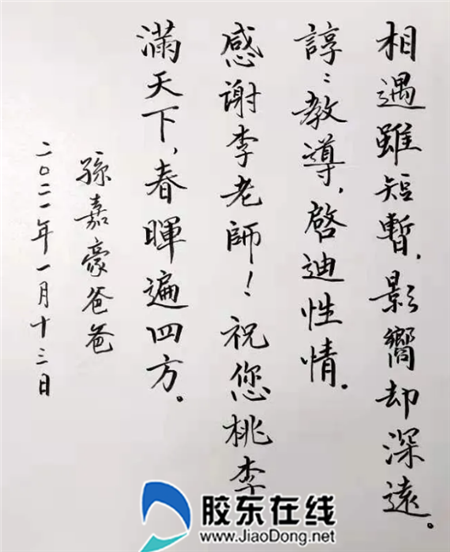 相遇雖短暫，影嚮却深遠。
諄：教導，啓迪性情．
感谢李老師！祝您桃李
滿天下，春暉遍四方。
孫嘉豪爸爸
二〇二一年一月十三日
胶东在线
www.JiaoDong.net